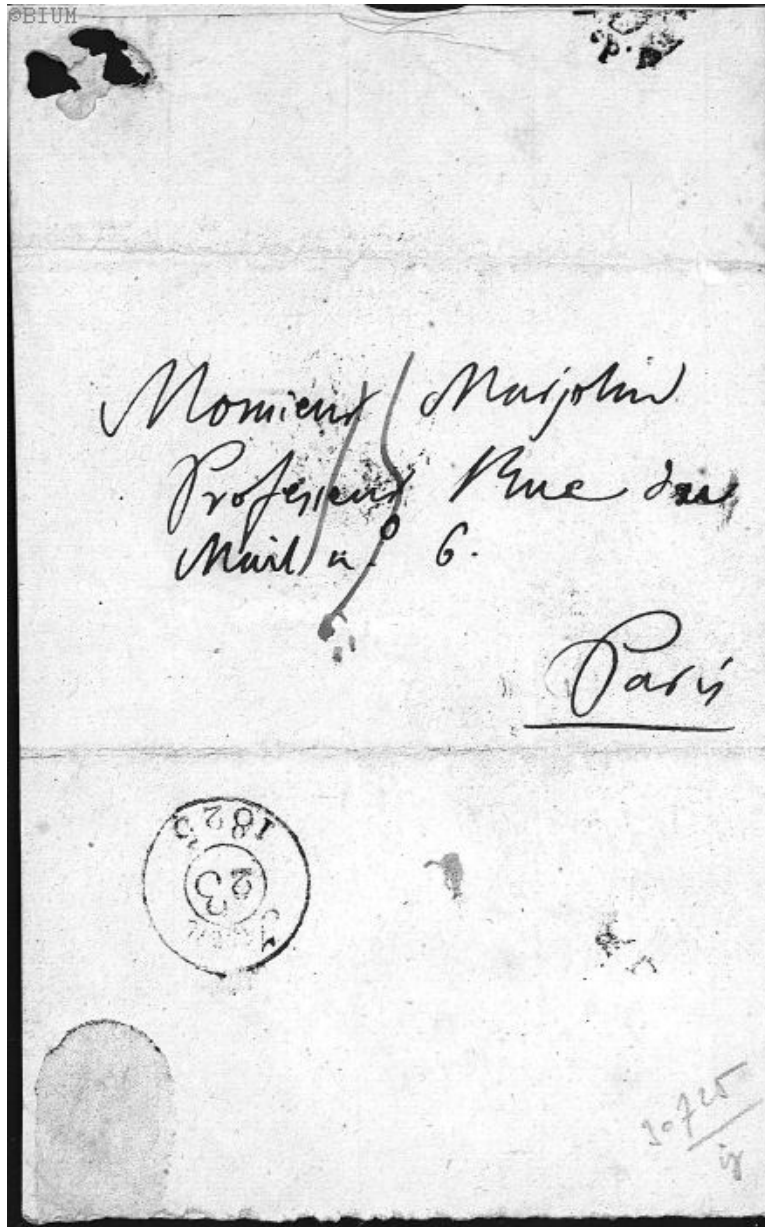 ©BIUM
Monsieur Marjolin
Professeur Rue du
Mail n.º 6.
Paris
1825
23
30725